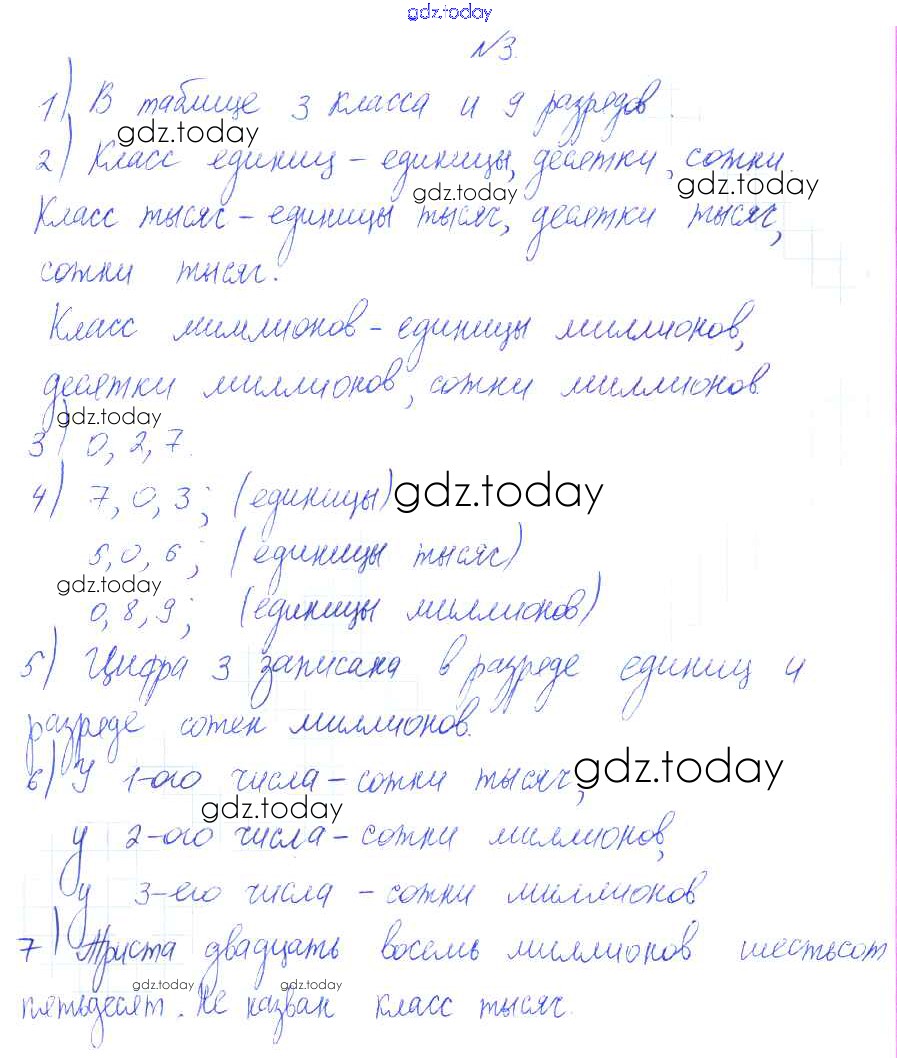 gdz.today
№3.
1) В таблице 3 класса и 9 разрядов.
gdz.today
2) Класс единиц - единицы, десятки, сотни.
gdz.today gdz.today
Класс тысяч - единицы тысяч, десятки тысяч,
сотни тысяч.
Класс миллионов - единицы миллионов,
десятки миллионов, сотни миллионов.
gdz.today
3) 0, 2, 7.
4) 7, 0, 3; (единицы) gdz.today
5, 0, 6; (единицы тысяч)
gdz.today
0, 8, 9; (единицы миллионов)
5) Цифра 3 записана в разряде единиц и
разряде сотен миллионов.
6) У 1-ого числа - сотни тысяч, gdz.today
gdz.today
у 2-ого числа - сотни миллионов,
у 3-его числа - сотни миллионов
7) Триста двадцать восемь миллионов шестьсот
gdz.today gdz.today
пятьдесят. Не назван класс тысяч.